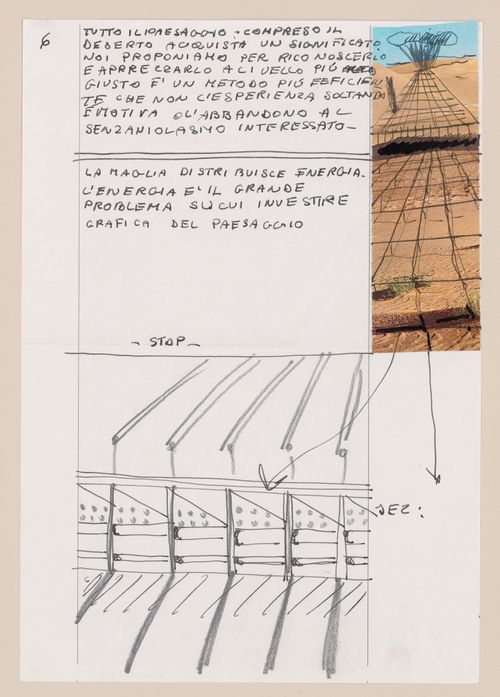 6
TUTTO IL PAESAGGIO, COMPRESO IL
DESERTO ACQUISTA UN SIGNIFICATO.
NOI PROPONIAMO PER RICONOSCERLO
E APPREZZARLO A LIVELLO PIÙ
GIUSTO E' UN METODO PIÙ EFFICIEN
TE CHE NON L'ESPERIENZA SOLTANTO
EMOTIVA O L'ABBANDONO AL
INTERESSATO—
LA MAGLIA DISTRIBUISCE ENERGIA.
L'ENERGIA E' IL GRANDE
PROBLEMA SU CUI INVESTIRE
GRAFICA DEL PAESAGGIO
- STOP -
SEZ: